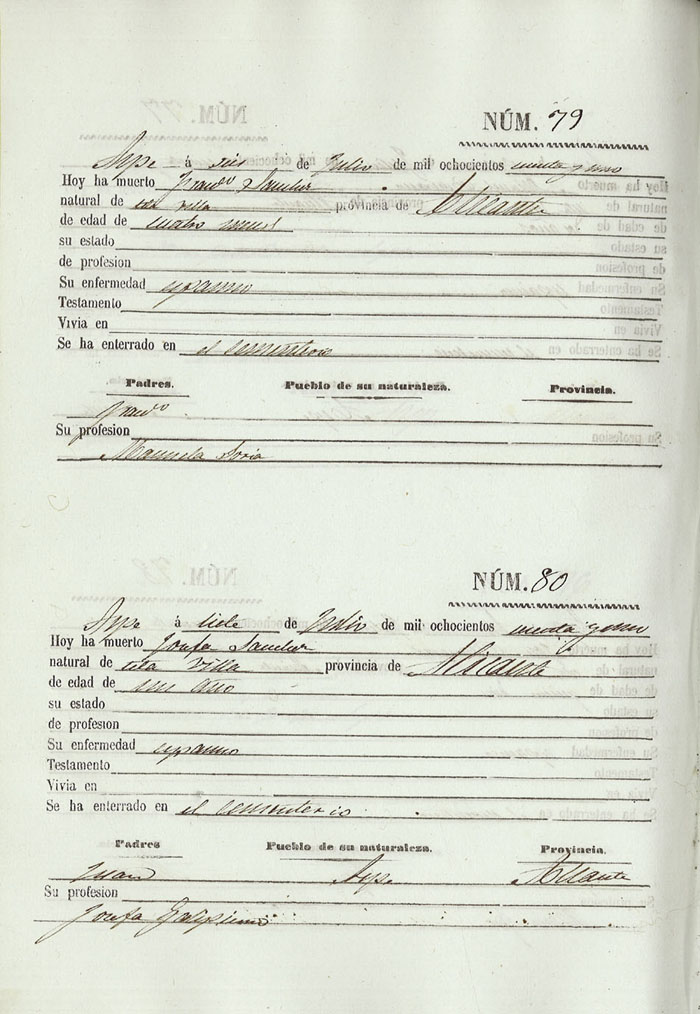 NÚM. 79
Aspe á seis de Julio de mil ochocientos
Hoy ha muerto Franco Sanchez
natural de esta villa provincia de Alicante
de edad de cuatro meses
su estado
de profesion
Su enfermedad espasmo
Testamento
Vivia en
Se ha enterrado en el cementerio
Padres. Pueblo de su naturaleza. Provincia.
Franco
Su profesion
Manuela Soria
NÚM. 80
Aspe á siete de Julio de mil ochocientos
Hoy ha muerto Josefa Sanchez
natural de esta Villa provincia de Alicante
de edad de un año
su estado
de profesion
Su enfermedad espasmo
Testamento
Vivia en
Se ha enterrado en el cementerio
Padres Pueblo de su naturaleza. Provincia.
Juan Aspe Alicante
Su profesion
Josefa